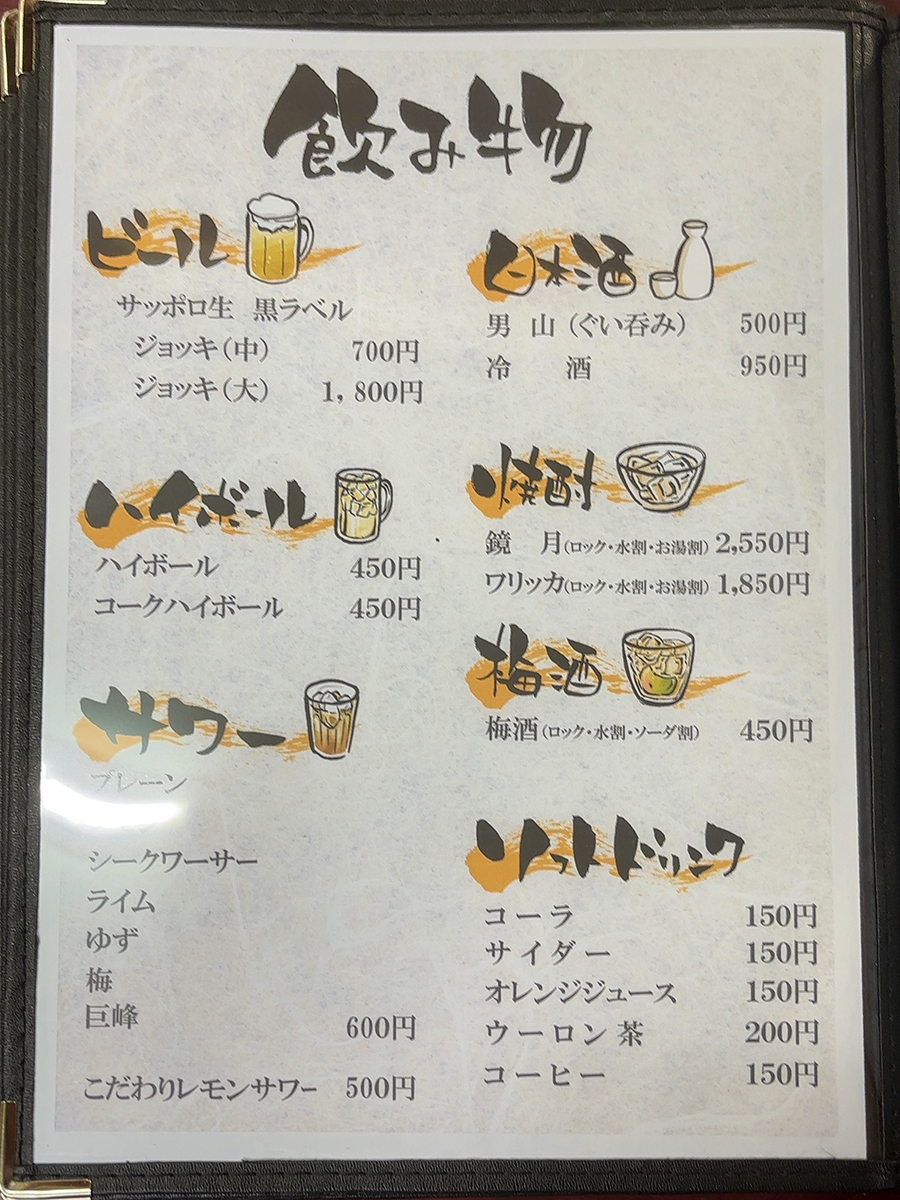 飲み物
ビール
サッポロ生 黒ラベル
ジョッキ(中) 700円
ジョッキ(大) 1,800円
ハイボール
ハイボール 450円
コークハイボール 450円
サワー
プレーン
シークワーサー
ライム
ゆず
梅
巨峰
600円
こだわりレモンサワー 500円
日本酒
男 山(ぐい呑み) 500円
冷 酒 950円
焼酎
鏡 月(ロック・水割・お湯割) 2,550円
ワリッカ(ロック・水割・お湯割) 1,850円
梅酒
梅酒(ロック・水割・ソーダ割) 450円
ソフトドリンク
コーラ 150円
サイダー 150円
オレンジジュース 150円
ウーロン茶 200円
コーヒー 150円